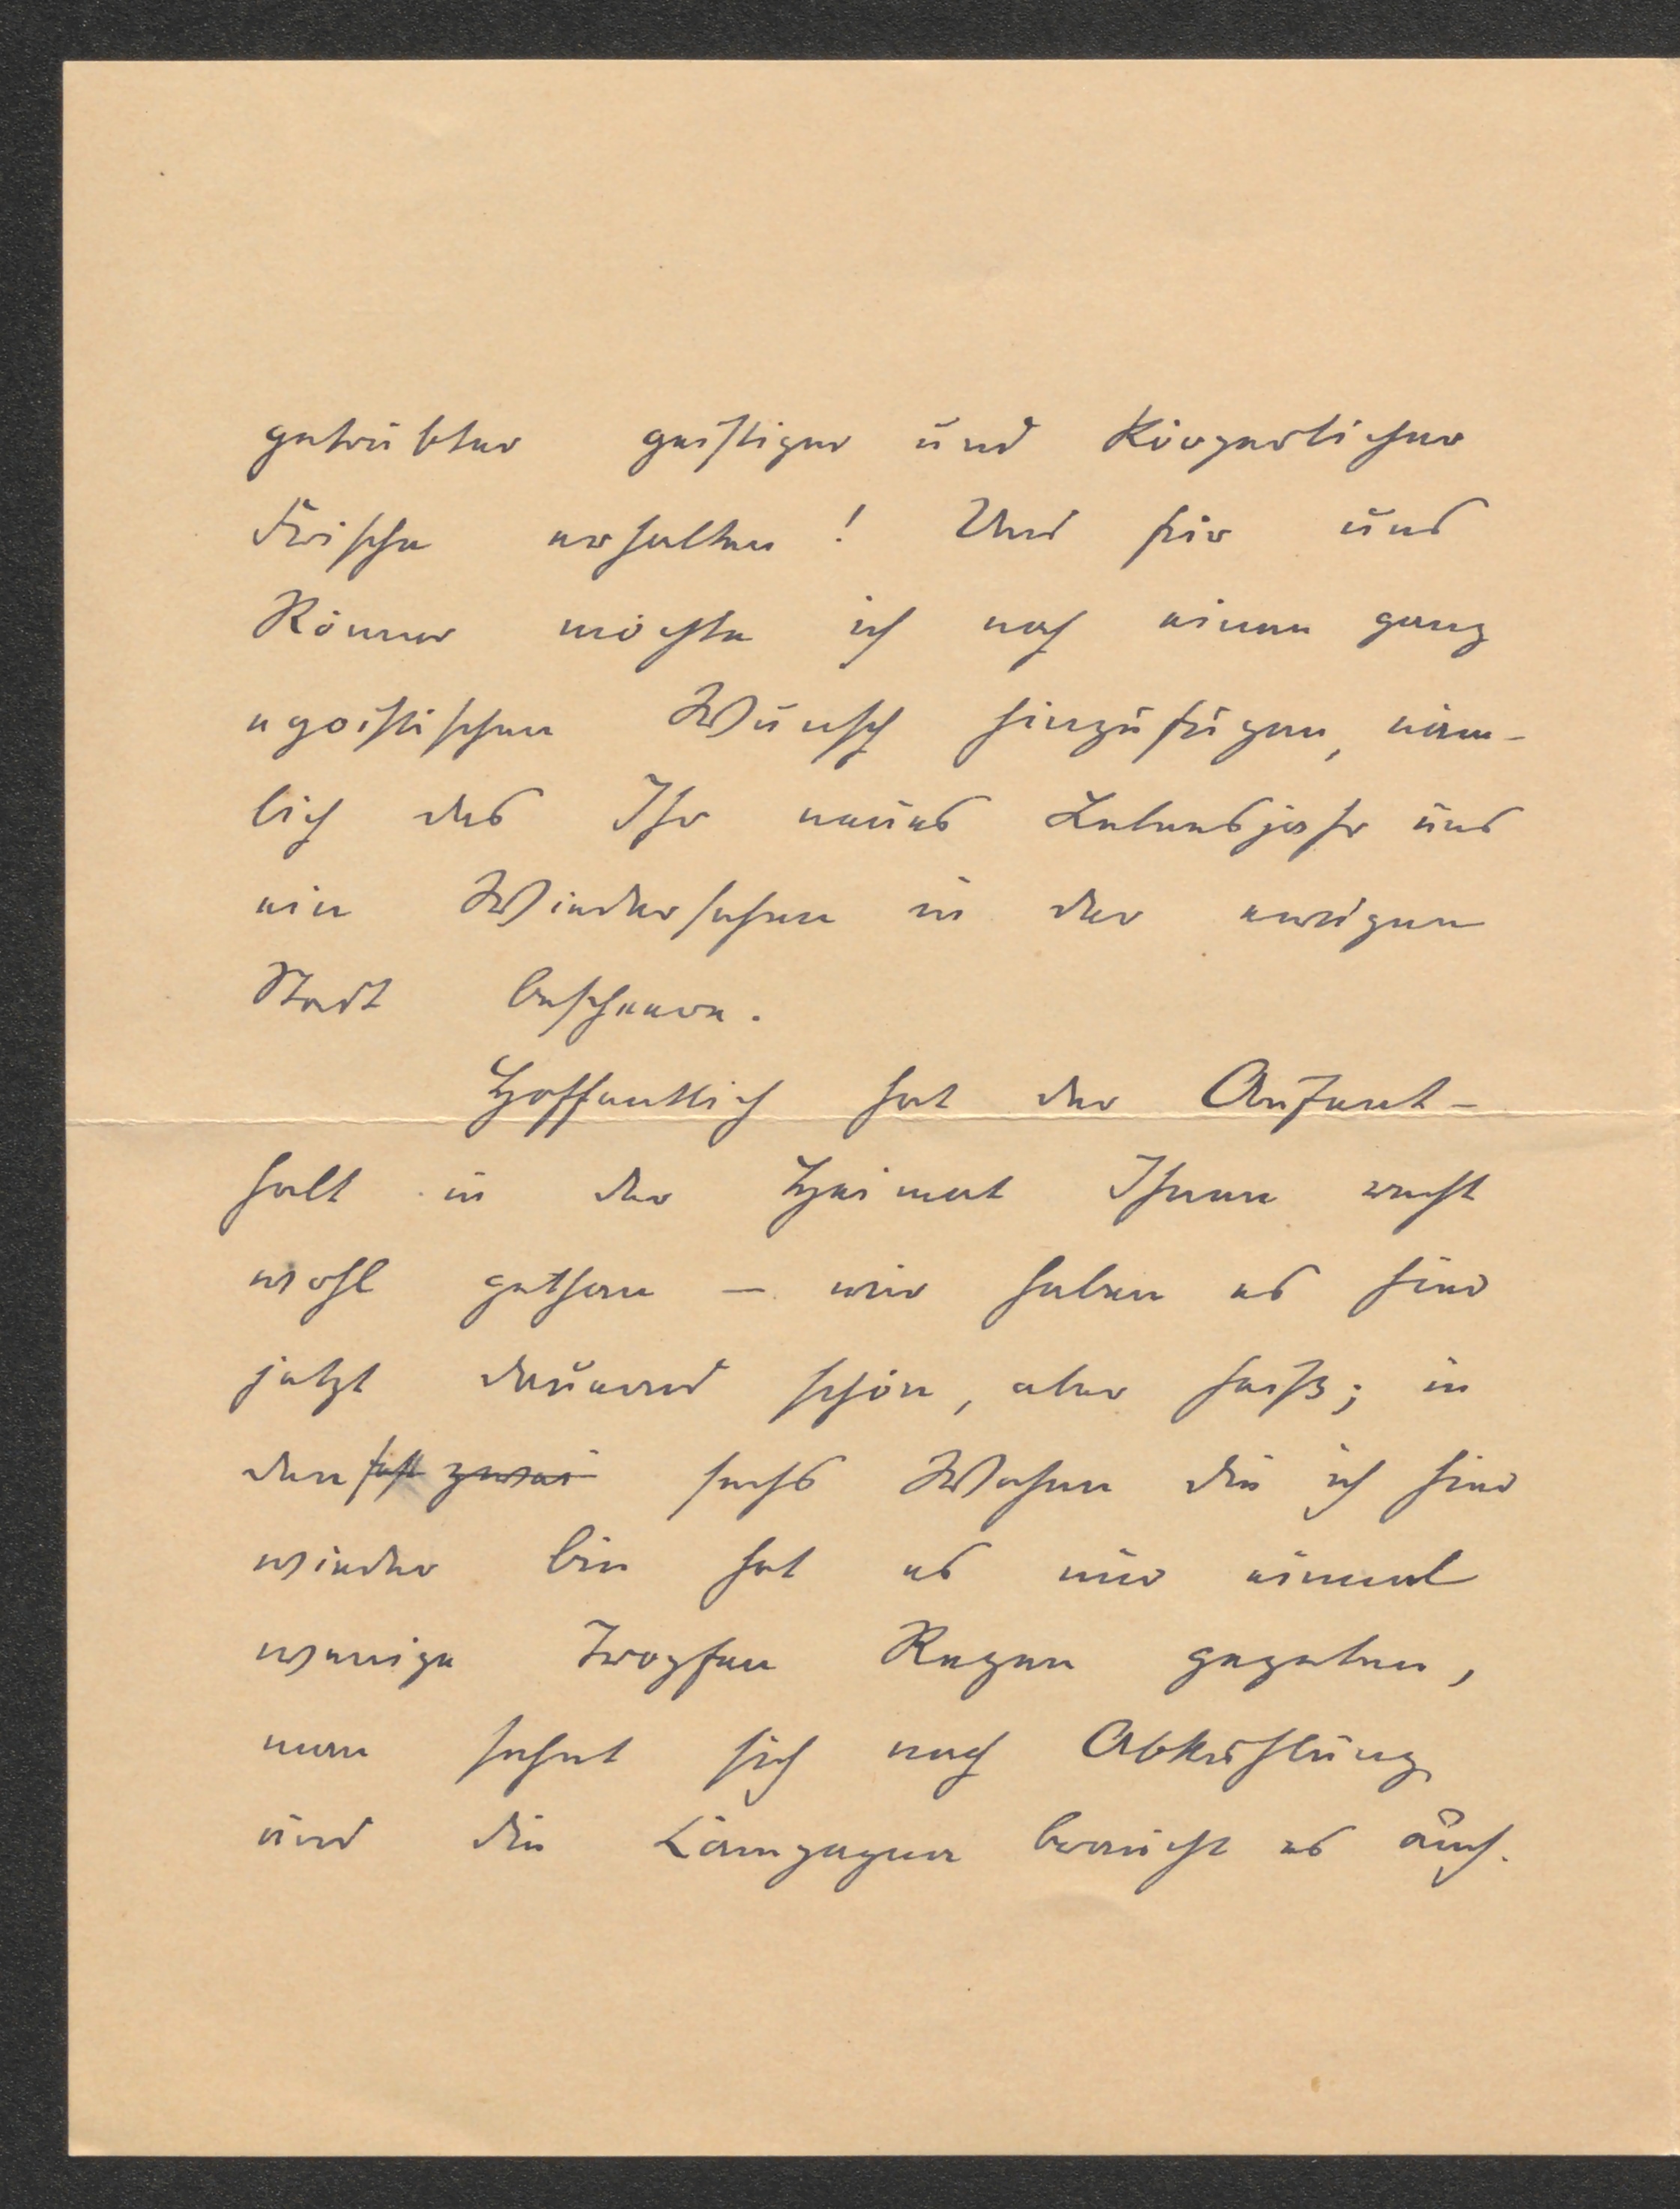 getrübter geistiger und körperlicher
Frische erhalten! Und für uns
Römer möchte ich noch einen ganz
egoistischen Wunsch hinzufügen, näm-
lich das Ihr neues Lebensjahr uns
ein Wiedersehen in der ewigen
Stadt beschere.
Hoffentlich hat der Aufent-
halt in der Heimat Ihnen recht
wohl gethan – wir haben es hier
jetzt dauernd schön, aber heiß; in
den fast zwei sechs Wochen die ich hier
wieder bin hat es nur einmal
wenige Tropfen Regen gegeben,
man sehnt sich nach Abkühlung
und die Campagna braucht es auch.